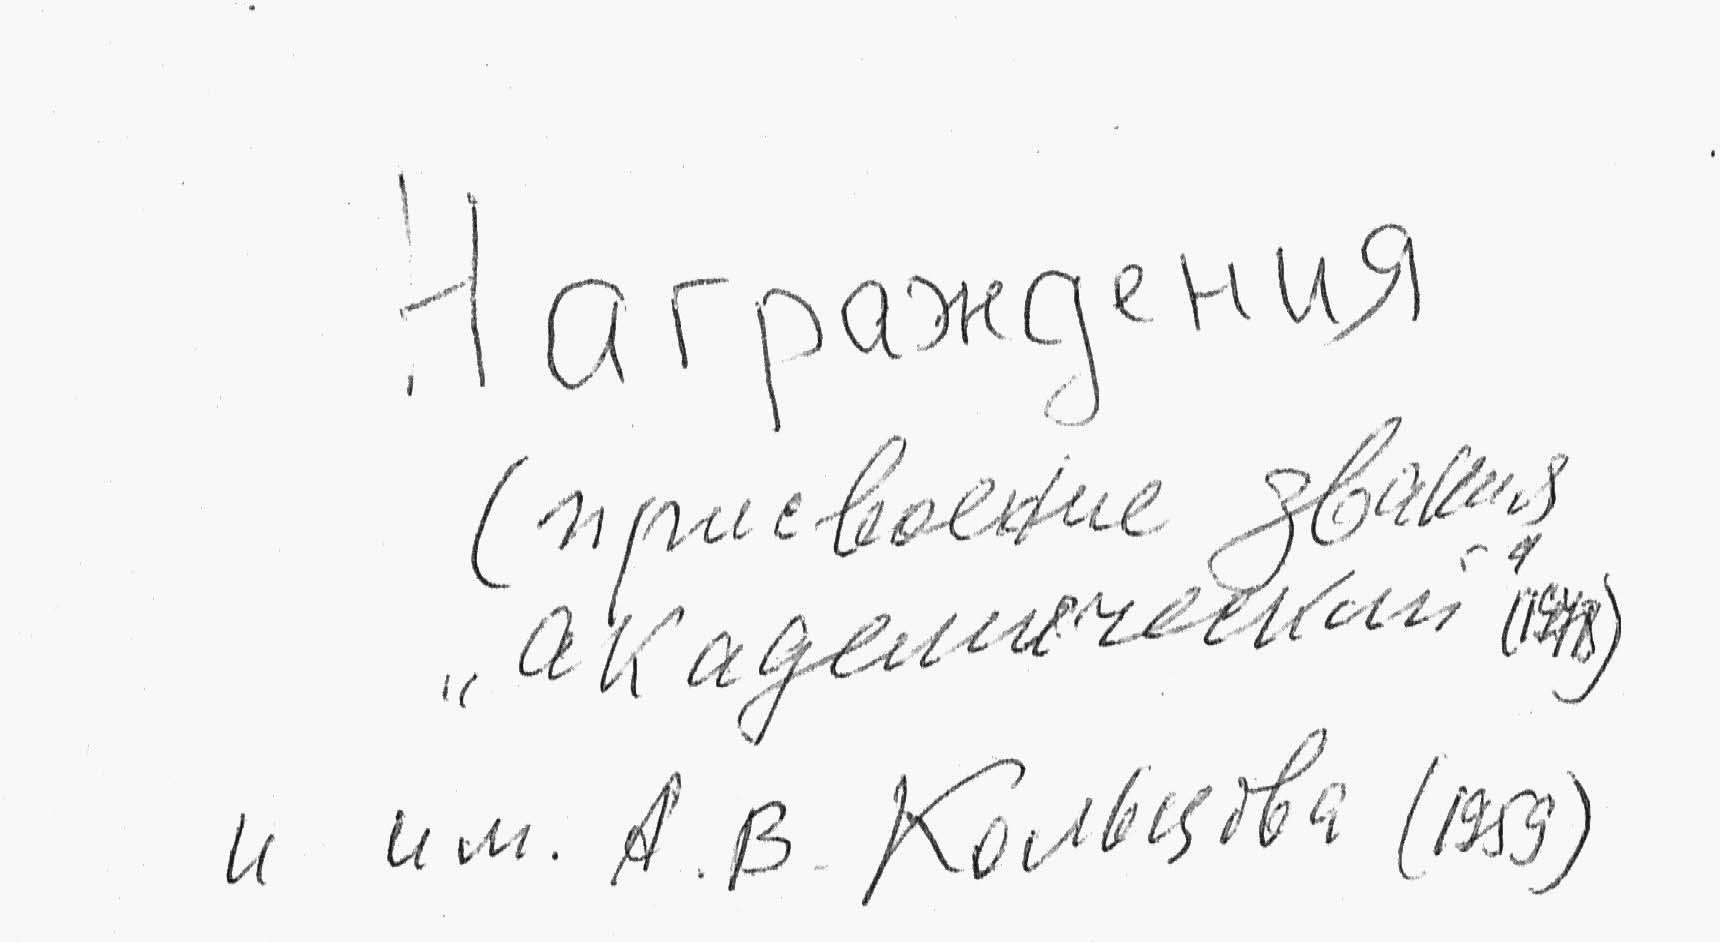 Награждения
(присвоение звания
„академический“ (1978)
и им. А. В. Кольцова (1959)